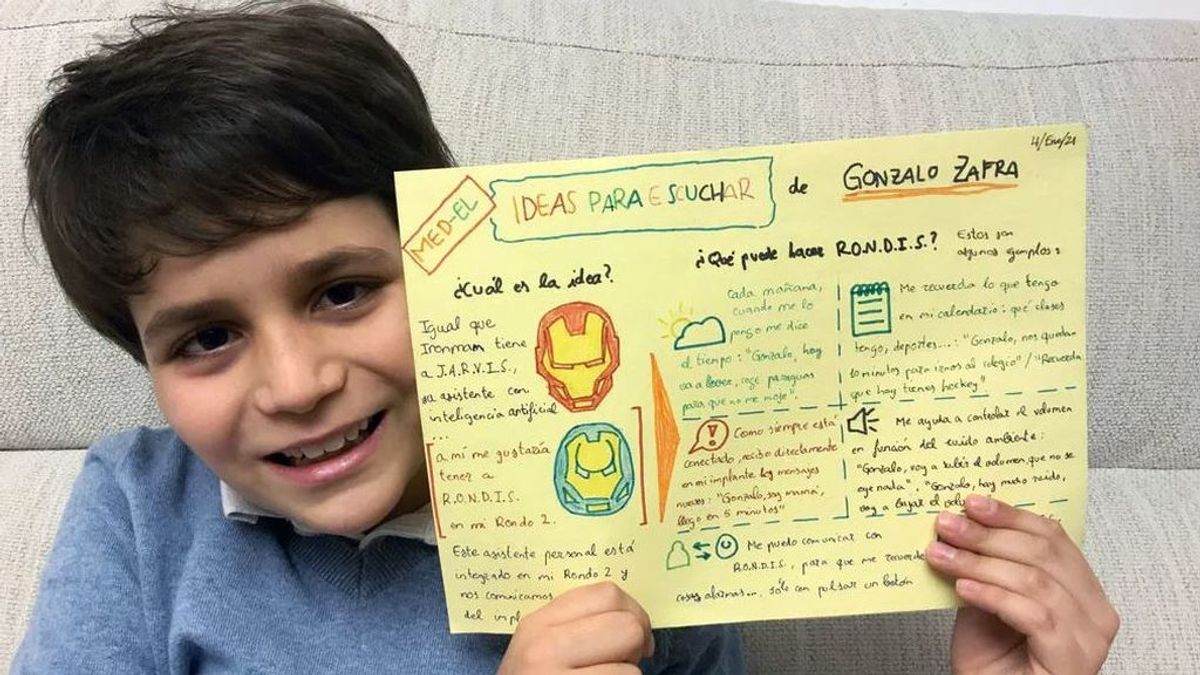 4/Ene/21
MED-EL
IDEAS PARA ESCUCHAR de GONZALO ZAFRA
¿Cuál es la idea?
Igual que
Ironman tiene
a J.A.R.V.I.S.,
su asistente con
inteligencia artificial
...
a mí me gustaría
tener a
R.O.N.D.I.S.
en mi Rondo 2.
Este asistente personal está
integrado en mi Rondo 2 y
nos comunicamos
del impl
¿Qué puede hacer R.O.N.D.I.S.?
Estos son
algunos ejemplos:
Cada mañana,
cuando me lo
pongo me dice
el tiempo: "Gonzalo, hoy
va a llover, coge paraguas
para que no me moje".
Me recuerda lo que tengo
en mi calendario: qué clases
tengo, deportes...: "Gonzalo, nos quedan
10 minutos para irnos al colegio" / "Recuerda
que hoy tienes hockey"
Como siempre está
conectado, recibo directamente
en mi implante los mensajes
nuevos: "Gonzalo, soy mamá,
llego en 5 minutos"
Me ayuda a controlar el volumen
en función del ruido ambiente:
"Gonzalo, voy a subir el volumen, que no se
oye nada". "Gonzalo, hay mucho ruido,
voy a bajar el volu
Me puedo comunicar con
R.O.N.D.I.S., para que me recuerde
cosas, alarmas... sólo con pulsar un botón